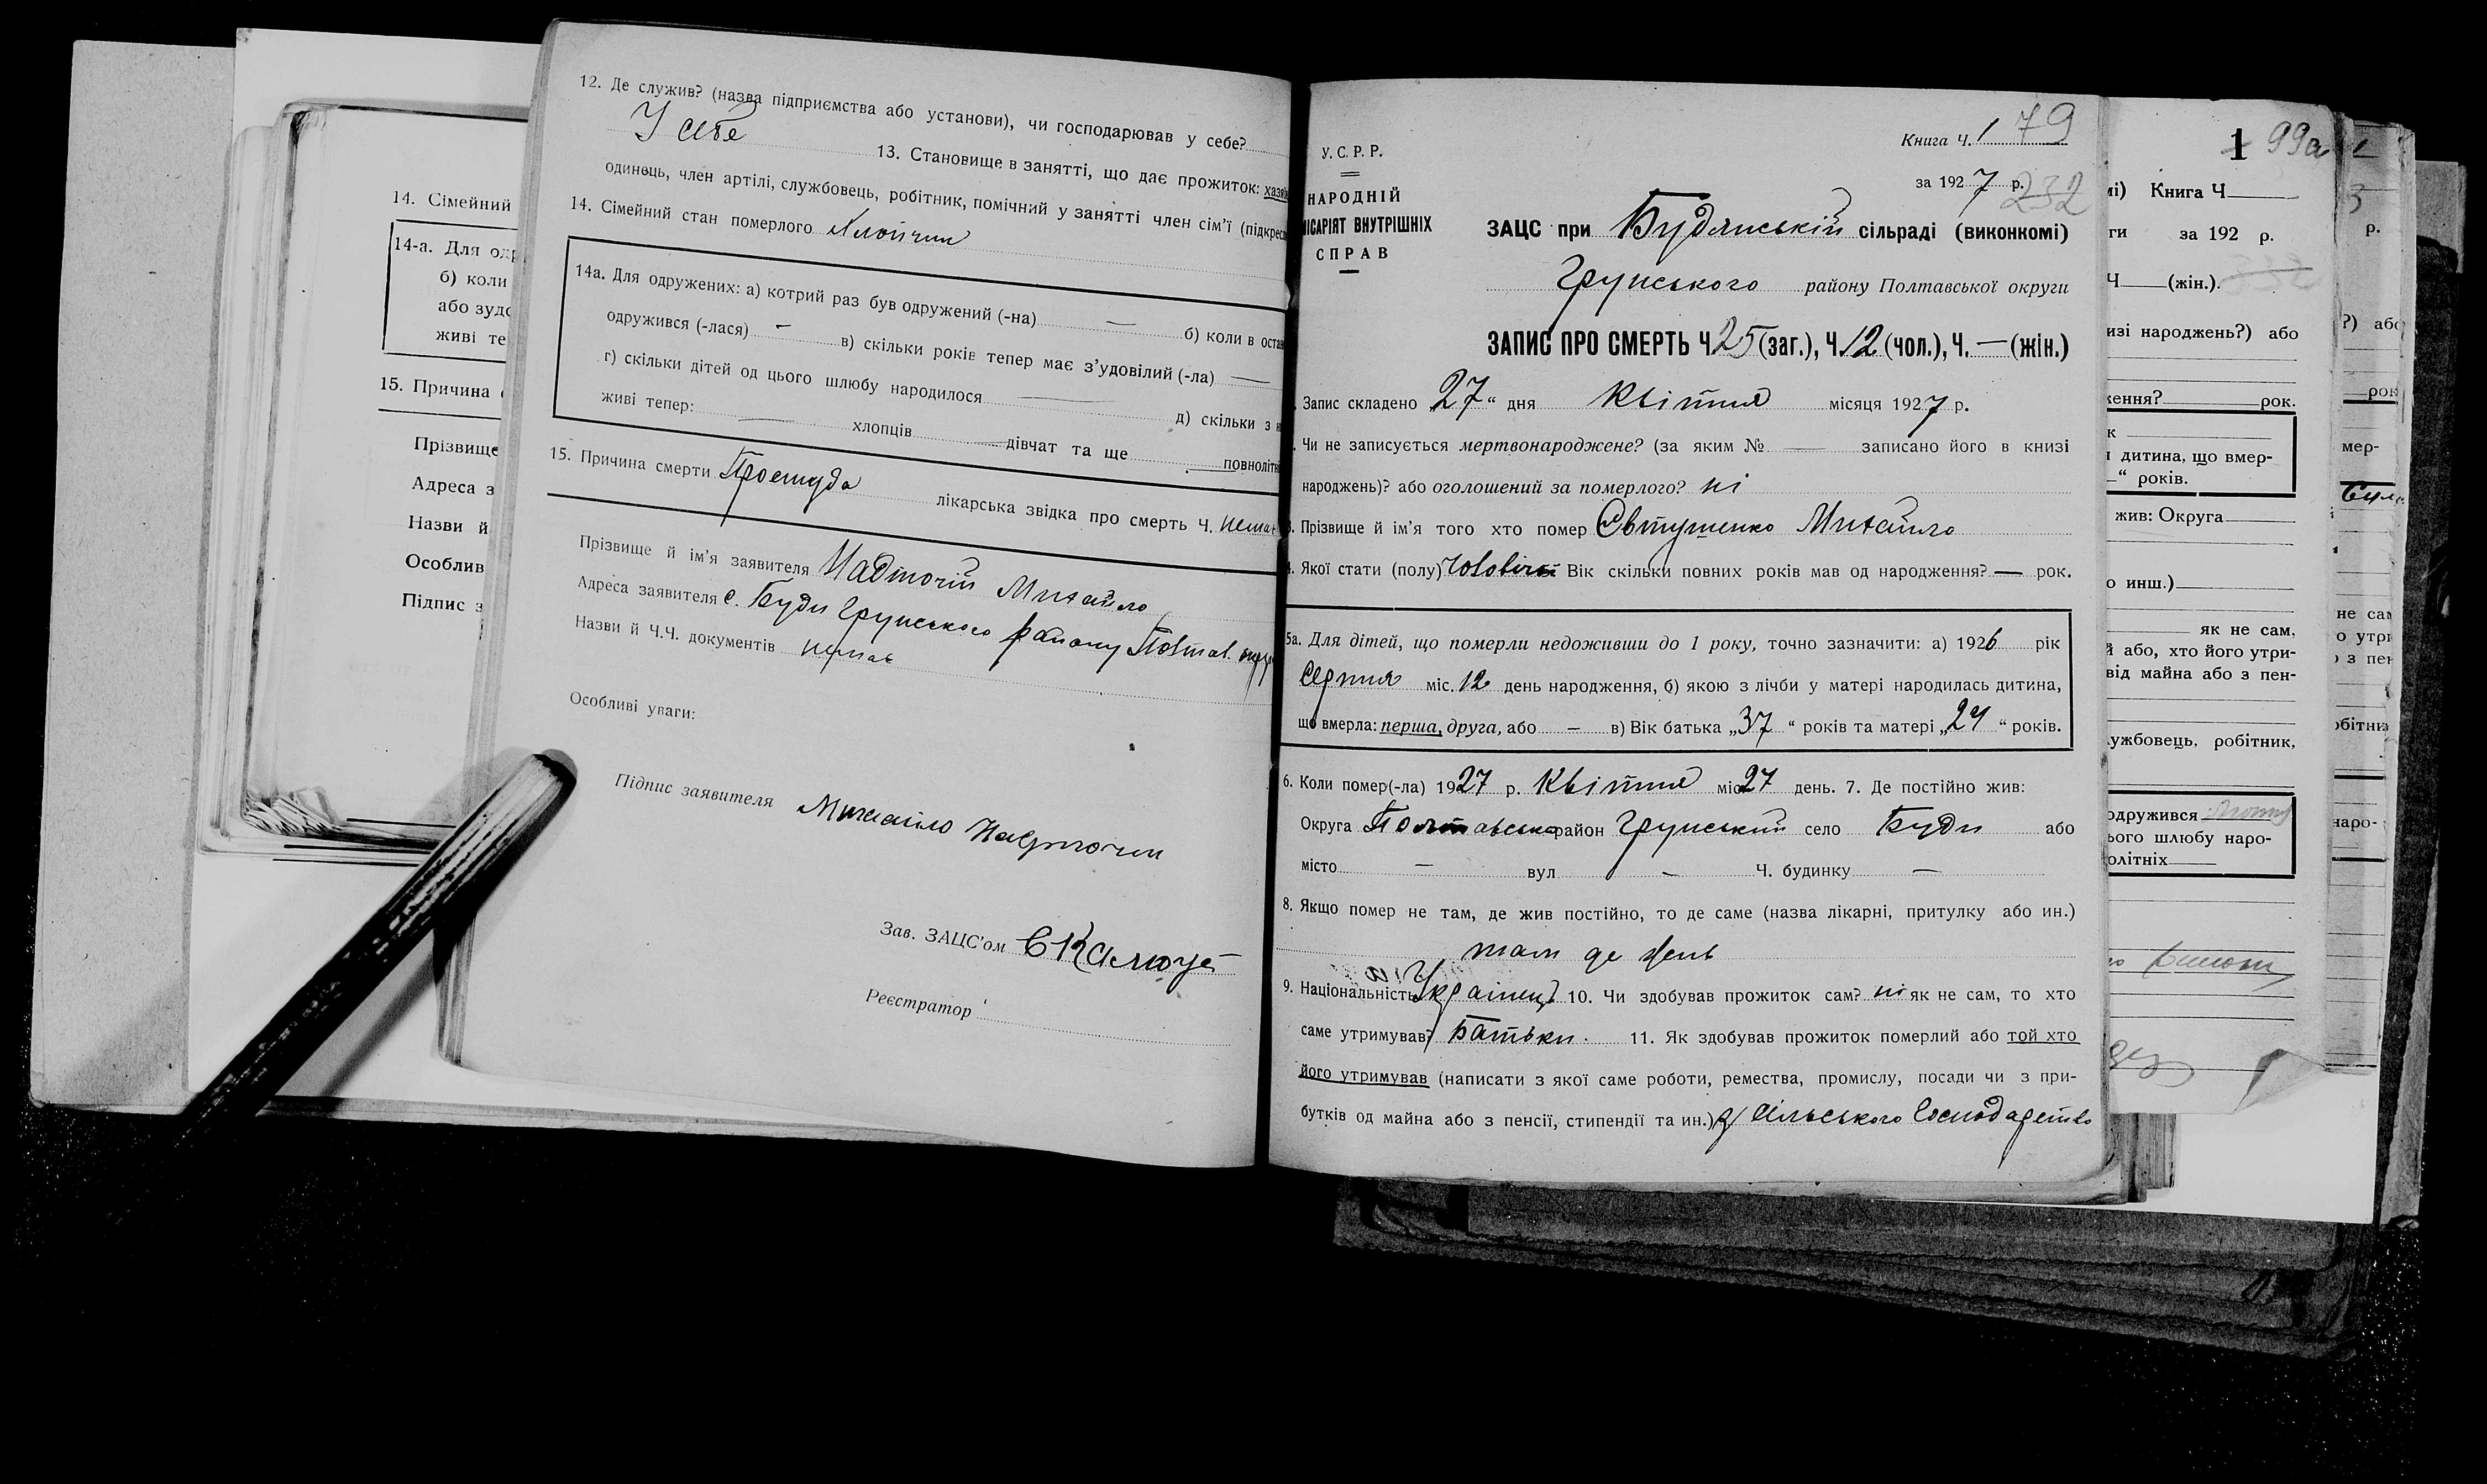 14. Сімейний
14-а. Для
б) коли
або
живі те
15. Причина
Прізвище
Адреса з
Назви й
Особлив
Підпис з
12. Де служив? (назва підприємства або установи), чи господарював у себе?
У себе 13. Становище в занятті, що дає прожиток:
одинець, член артілі, службовець, робітник, помічний у занятті член сім'ї
14. Сімейний стан померлого Хлопчик
14а. Для одружених: а) котрий раз був одружений (-на) — б) коли в
одружився (-лася) — в) скільки років тепер має з'удовілий (-ла) —
г) скільки дітей од цього шлюбу народилося — д) скільки з
живі тепер: — хлопців — дівчат та ще — повноліт
15. Причина смерти Простуда лікарська звідка про смерть Ч.
Прізвище й ім'я заявителя Надточій Михайло
Адреса заявителя с. Буди Грунського району Полтав.
Назви й Ч.Ч. документів немає
Особливі уваги:
Підпис заявителя Михайло Надточий
Зав. ЗАЦС'ом
Реєстратор
Книга Ч. 1 79
У.С.Р.Р.
за 1927 р. 232
НАРОДНІЙ
КОМІСАРІЯТ ВНУТРІШНІХ
СПРАВ
ЗАЦС при Будянській сільраді (виконкомі)
Грунського району Полтавської округи
ЗАПИС ПРО СМЕРТЬ Ч 25 (заг.), Ч. 12 (чол.), Ч. — (жін.)
Запис складено „27“ дня Квітня місяця 1927 р.
Чи не записується мертвонароджене? (за яким № — записано його в книзі
народжень)? або оголошений за померлого? ні
3. Прізвище й ім'я того хто помер Євтушенко Михайло
4. Якої стати (полу) Вік скільки повних років мав од народження? — рок.
5а. Для дітей, що померли недоживши до 1 року, точно зазначити: а) 1926 рік
Серпня міс. 12 день народження, б) якою з лічби у матері народилась дитина,
що вмерла: перша, друга, або — в) Вік батька „37“ років та матері „24“ років.
6. Коли помер(-ла) 1927 р. Квітня міс 27 день. 7. Де постійно жив:
Округа Полтавська район Грунський село Буди або
місто — вул — Ч. будинку —
8. Якщо помер не там, де жив постійно, то де саме (назва лікарні, притулку або ин.)
там де жив
9. Національність Українець 10. Чи здобував прожиток сам? ні як не сам, то хто
саме утримував? Батьки. 11. Як здобував прожиток померлий або той хто
його утримував (написати з якої саме роботи, ремества, промислу, посади чи з при-
бутків од майна або з пенсії, стипендії та ин.) з сільського господарства
1 99а
мі) Книга Ч
ги за 192 р.
Ч (жін.). 332
изі народжень?) або
ження? рок.
к
дитина, що вмер-
“ років.
жив: Округа
о инш.)
як не сам,
й або, хто його утри-
від майна або з пен-
ужбовець, робітник,
одружився
ього шлюбу наро-
олітніх
р.
?) або
рок
мер-
не сам
о утри
з пен
обітник
наро-